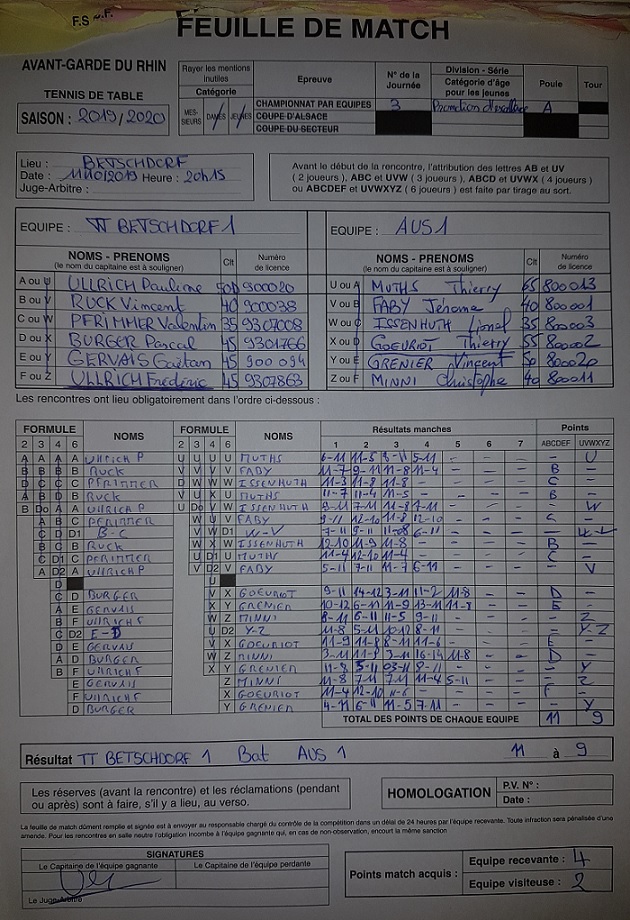 F.S ~.F.
FEUILLE DE MATCH
AVANT-GARDE DU RHIN
TENNIS DE TABLE
SAISON : 2019/2020
Rayer les mentions inutiles
Catégorie
MES-SIEURS DAMES JEUNES
Epreuve
N° de la Journée
Division - Série
Catégorie d'âge pour les jeunes
Poule
Tour
CHAMPIONNAT PAR EQUIPES 3 Promotion d'excellence A
COUPE D'ALSACE
COUPE DU SECTEUR
Lieu : BETSCHDORF
Date : 11/10/2019 Heure : 20h15
Juge-Arbitre :
Avant le début de la rencontre, l'attribution des lettres AB et UV
( 2 joueurs ), ABC et UVW ( 3 joueurs ), ABCD et UVWX ( 4 joueurs )
ou ABCDEF et UVWXYZ ( 6 joueurs ) est faite par tirage au sort.
EQUIPE : TT BETSCHDORF 1
EQUIPE : AUS 1
NOMS - PRENOMS Clt Numéro de licence
(le nom du capitaine est à souligner)
NOMS - PRENOMS Clt Numéro de licence
(le nom du capitaine est à souligner)
A ou U ULLRICH Pauline 900020
B ou V RUCK Vincent 40 900038
C ou W PFRIMMER Valentin 35 9307008
D ou X BURGER Pascal 45 9301766
E ou Y GERVAIS Gaëtan 45 900094
F ou Z ULLRICH Frédéric 45 9307863
U ou A MUTHS Thierry 65 800013
V ou B FABY Jérome 40 800001
W ou C ISSENHUTH Lionel 35 800003
X ou D GOEURIOT Thierry 55 800002
Y ou E GRENIER Vincent 50 800020
Z ou F MINNI Christophe 40 800011
Les rencontres ont lieu obligatoirement dans l'ordre ci-dessous :
FORMULE NOMS FORMULE NOMS Résultats manches Points
2 3 4 6 2 3 4 6 1 2 3 4 5 6 7 ABCDEF UVWXYZ
A A A A ULLRICH P U U U U MUTHS 6-11 11-5 8-11 5-11 - - - - U
B B B B RUCK V V V V FABY 11-7 9-11 11-8 11-4 - - - B -
PFRIMMER ISSENHUTH 11-3 11-8 11-8 - - - - C -
RUCK MUTHS 11-7 11-4 11-5 - - - - B -
ULLRICH P ISSENHUTH 9-11 11-7 11-8 - - - - W
PFRIMMER FABY 9-11 12-10 11-8 12-10 - - - C -
B-C W-V 7-11 9-11 11-08 6-11 - - -
RUCK ISSENHUTH 12-10 11-9 11-8 - - - - B -
PFRIMMER MUTHS 11-4 12-10 11-4 - - - - C -
ULLRICH P FABY 5-11 7-11 11-7 6-11 - - - - V
BURGER GOEURIOT 9-11 14-12 3-11 11-2 11-8 - - D -
GERVAIS GRENIER 10-12 6-11 11-9 13-11 11-8 - - E -
ULLRICH F MINNI 8-11 6-11 11-5 9-11 - - - - Z
E-D Y-Z 11-8 5-11 10-12 8-11 - - - - Y-Z
GERVAIS GOEURIOT 11-9 11-8 8-11 11-4 - - - E -
BURGER MINNI 3-11 11-9 3-11 16-14 11-8 - - D -
ULLRICH F GRENIER 11-8 5-11 03-11 8-11 - - - - Y
GERVAIS MINNI 11-8 7-11 7-11 11-4 5-11 - - - Z
ULLRICH F GOEURIOT 11-4 12-10 11-6 - - - - F -
BURGER GRENIER 4-11 6-11 11-5 7-11 - - - - Y
TOTAL DES POINTS DE CHAQUE EQUIPE 11 9
Résultat TT BETSCHDORF 1 Bat AUS 1 11 à 9
Les réserves (avant la rencontre) et les réclamations (pendant
ou après) sont à faire, s'il y a lieu, au verso.
HOMOLOGATION
P.V. N° :
Date :
La feuille de match dûment remplie et signée est à envoyer au responsable chargé du contrôle de la compétition dans un délai de 24 heures par l'équipe recevante. Toute infraction sera pénalisée d'une
amende. Pour les rencontres en salle neutre l'obligation incombe à l'équipe gagnante qui, en cas de non-observation, encourt la même sanction
SIGNATURES
Le Capitaine de l'équipe gagnante
Le Capitaine de l'équipe perdante
Le Juge-Arbitre
Points match acquis :
Equipe recevante : 4
Equipe visiteuse : 2